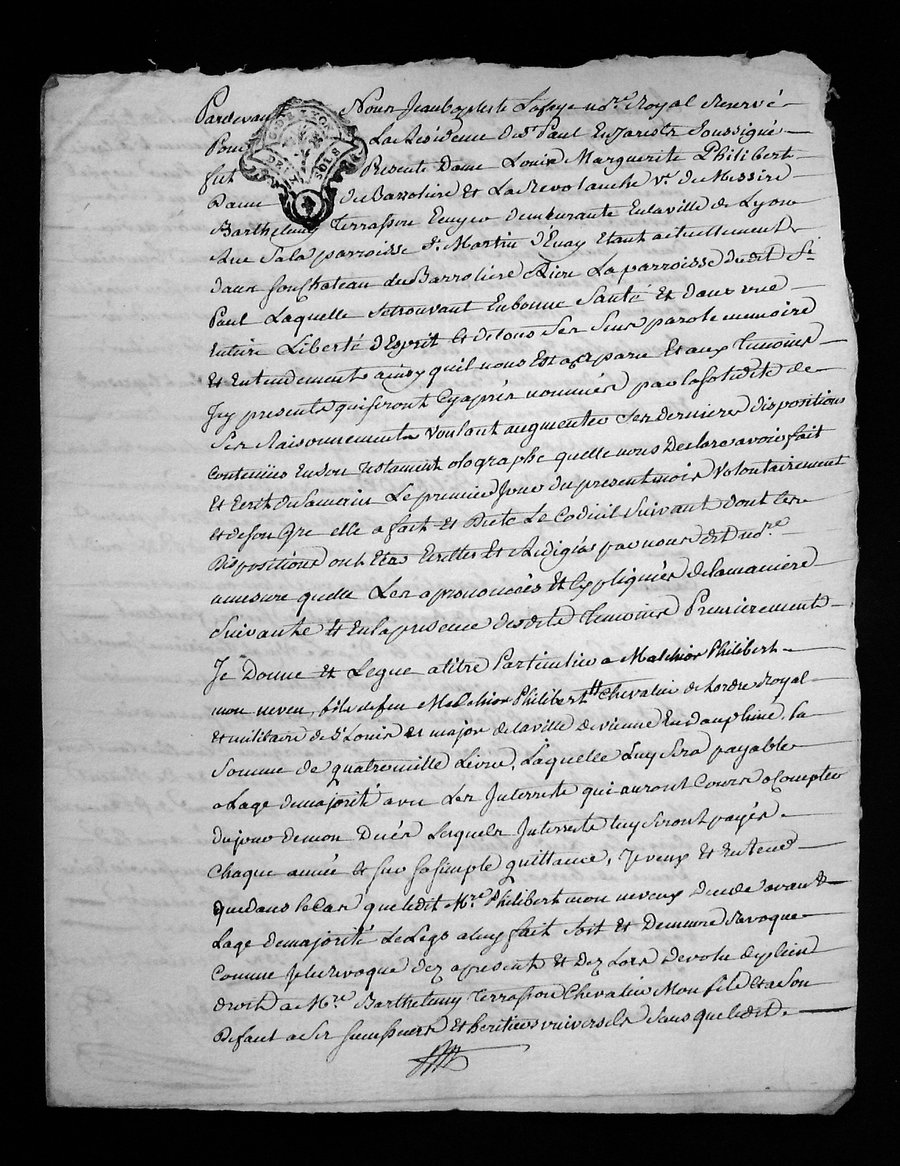 Pardevant Nous Jean Baptiste Lafaye no.re Royal Reservé
Pour La Residence de St Paul En Jarests Soussigné
fut Presente Dame Louise Marguerite Philibert
Dame du Barroliere Et La Revolanche v.e de Messire
Barthelemy Terrasson Ecuyer demeurante En la ville de Lyon
Rue Sala parroisse St Martin d'Enay Etant actuellement
dans son Chateau du Barroliere Riere La parroisse dudit St
Paul Laquelle se trouvant En bonne Santé Et dans une
Entiere Liberté d'Esprit Et de tous Ses Sens parole memoire
Et Entendement ainsy quil nous Est apparu Et aux temoins
Icy presents qui seront Cy après nommés par la solidité de
Ses Raisonnements voulant augmenter Ses dernieres dispositions
Contenües En son Testament olographe quelle nous Declare avoir fait
Et Ecrit de sa main Le premier Jour du present mois Volontairement
et de son Gre elle a fait Et Dicte Le Codicil Suivant dont Les
Dispositions ont Etés Ecrittes Et Redigées par nous dit no.re
a mesure quelle Les a prononcées Et Expliquées de la maniere
Suivante Et En la presence desdits Temoins Premierement
Je Donne et Legue a titre Particulier a Melchior Philibert
mon neveu, fils de feu Melchior Philibert Chevalier de Lordre Royal
et militaire de St Louis et major de la ville de vienne En dauphiné, la
Somme de quatre mille Livres, Laquelle Luy Sera payable
a Lage de majorité avec Les Interrests qui auront Cours a Compter
du jour de mon Décès Lesquels Interrests luy seront payés
Chaque année et sur sa simple quittance, Je veux et Entend
que dans le Cas que ledit Mr. Philibert mon neveux decede avant
Lage de majorité Le Legs a luy fait Soit Et Demeure Revoque
Comme je le revoque dez apresent Et Dez Lors Devolu de plein
droit a Mr. Barthelemy Terrasson Chevalier Mon fils Et a Son
Defaut a Ses Successeurs Et heritiers universels Sans que ledit